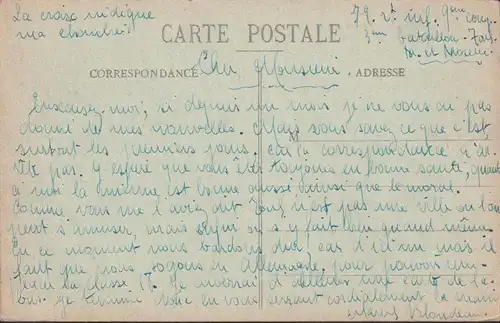 La croix indique
ma chambre.
79. rt inf. 9ème comp
3me bataillon. Toul
M. et Moselle.
CARTE POSTALE
CORRESPONDANCE
ADRESSE
Cher Monsieur
Excusez moi, si depuis un mois je ne vous ai pas
donné de mes nouvelles. Mais vous savez ce que c'est
surtout les premiers jours. car la correspondance n'ar-
rête pas. J'espère que vous êtes toujours en bonne santé, quant
à moi la mienne est bonne aussi ainsi que le moral.
Comme vous me l'aviez dit Toul n'est pas une ville où l'on
peut s'amuser, mais on s'y fait bien quand même.
En ce moment nous bardons dur, car d'ici un mois il
faut que nous soyons en Allemagne, pour pouvoir
la classe 17. Je
Je termine donc en vous serrant cordialement la main
Blondeau.